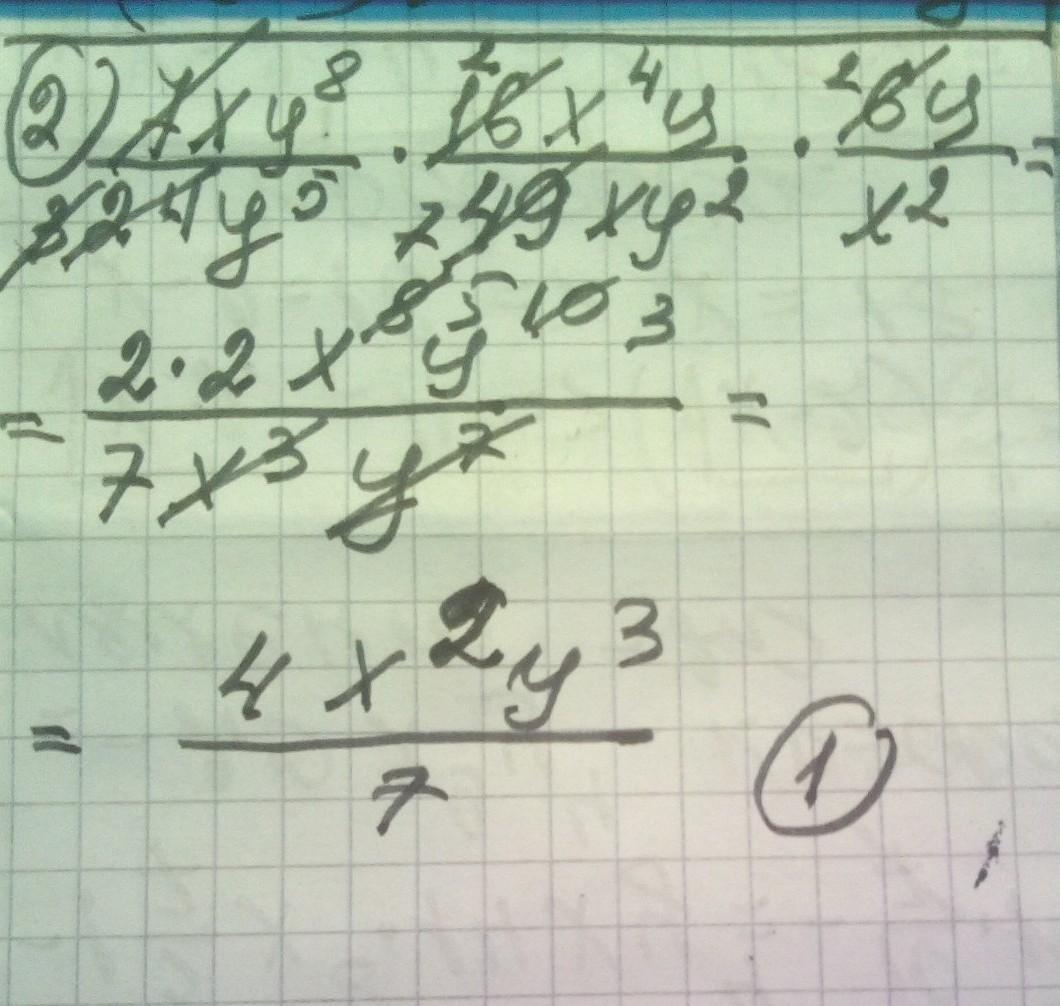 2) 7xy⁸/24y⁵ · 16x⁴y/49xy² · 6y/x² =
= 2·2x⁵y¹⁰ ³/7x³y⁷ =
= 4x²y³/7
1